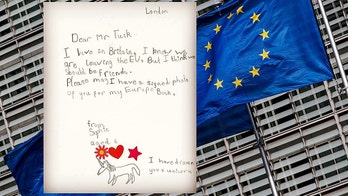 London
Dear Mr Tusk
I live in Britain. I know we
are leaving the EU. But I think we
should be friends.
Please may I have a signed photo
of you for my Europe Book.
from
Sophie
aged 6
I have drawn
you a unicorn